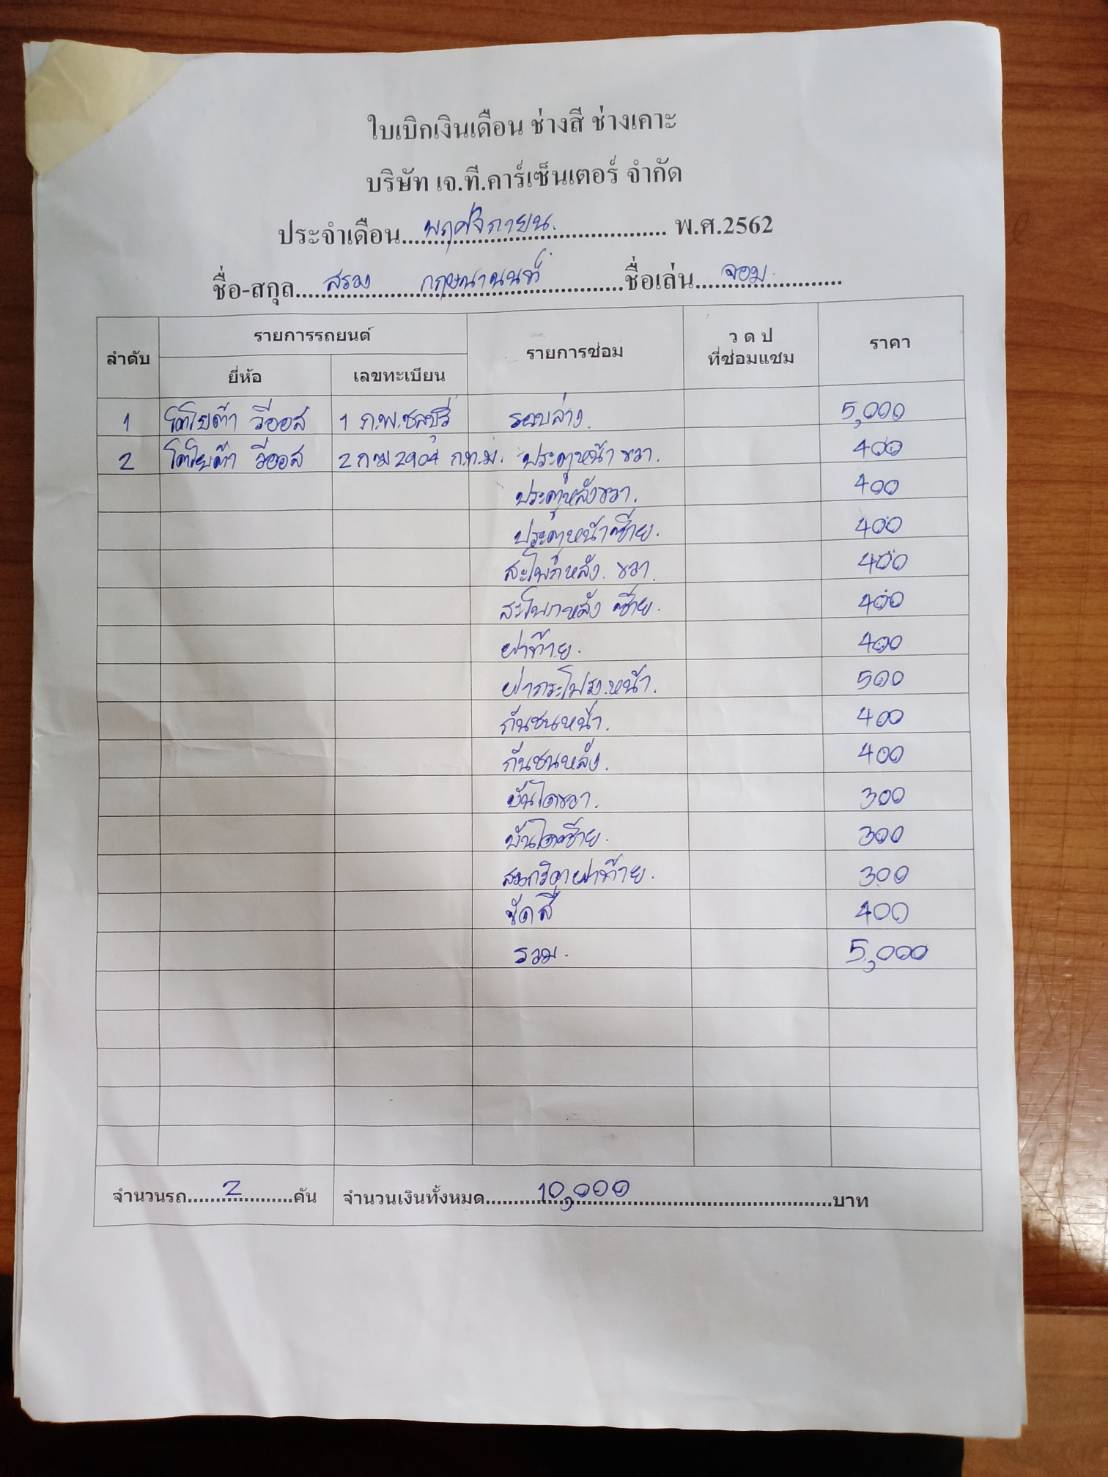 ใบเบิกเงินเดือน ช่างสี ช่างเคาะ
บริษัท เจ.ที.คาร์เซ็นเตอร์ จำกัด
ประจำเดือน...พฤศจิกายน...พ.ศ.2562
ชื่อ-สกุล... กฤษณานนท์...ชื่อเล่น...จอม...
ลำดับ รายการรถยนต์ รายการซ่อม ว ด ป ที่ซ่อมแซม ราคา
ยี่ห้อ เลขทะเบียน
1 โตโยต้า วีออส 1 ก.พ.ชลบุรี รอบล่าง. 5,000
2 โตโยต้า วีออส 2 2904 ก.ท.ม. ประตูหน้า ขวา. 400
ประตูหลังขวา. 400
ประตูหน้าซ้าย. 400
สะโพกหลัง. ขวา. 400
สะโพกหลัง ซ้าย. 400
ฝาท้าย. 400
ฝากระโปรง.หน้า. 500
กันชนหน้า. 400
กันชนหลัง. 400
บันไดขวา. 300
บันไดซ้าย. 300
ฝาท้าย. 300
ขัดสี 400
รวม. 5,000
จำนวนรถ...2...คัน จำนวนเงินทั้งหมด...10,000...บาท